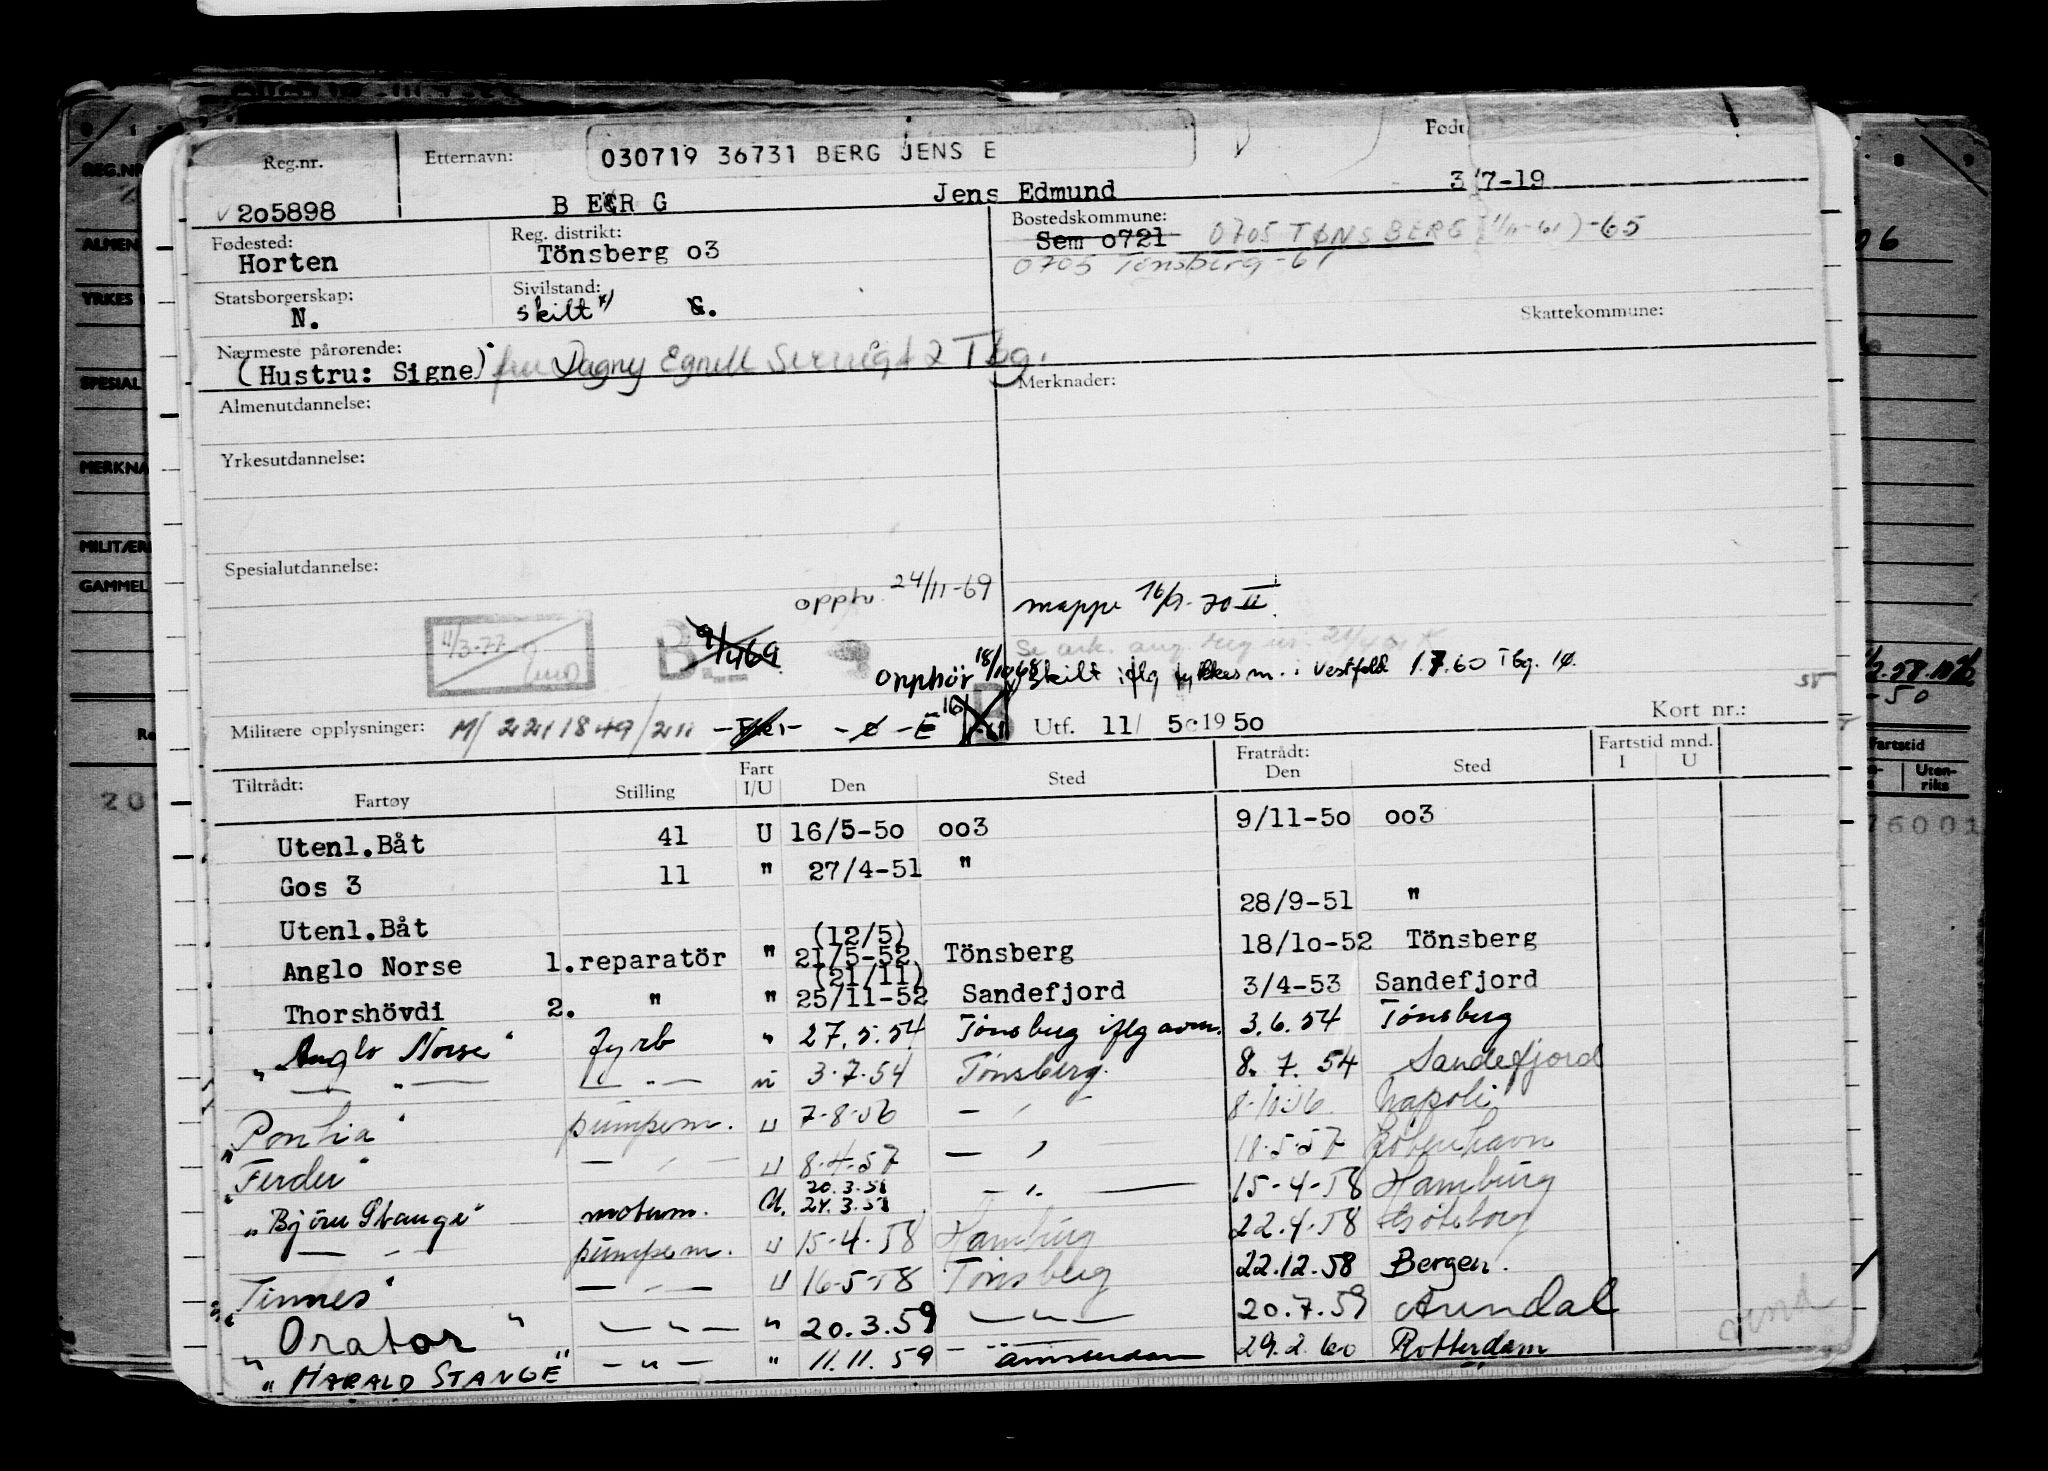 Reg.nr. Etternavn: 030719 36731 BERG JENS E Født
205898 BERG Jens Edmund 3/7-19
Fødested: Reg. distrikt: Bostedskommune:
Horten Tönsberg o3 Sem o721 0705 TØNSBERG (1/11-61)-65
0705 Tønsberg -61
Statsborgerskap: Sivilstand: Skattekommune:
N. skilt x) G.
Nærmeste pårørende:
(Hustru: Signe) fru Dagny Egnell 2 Tbg.
Almenutdannelse: Merknader:
Yrkesutdannelse:
Spesialutdannelse:
24/11-69 mappe 16/9-70 II
11/3-77 9/4 69
Opphör 18/10 68 skilt iflg fylkesm. i Vestfold 1.7.60 Tbg. 10.
Militære opplysninger: M/ 2241849/211 -Ø -E 16/ Utf. 11/ 5 1950 Kort nr.:
Tiltrådt: Fartøy Stilling Fart I/U Den Sted Fratrådt: Den Sted Fartstid mnd. I U
Utenl.Båt 41 U 16/5-50 oo3 9/11-50 oo3
Gos 3 11 " 27/4-51 "
Utenl.Båt 28/9-51 "
Anglo Norse 1.reparatör " (12/5) 21/5-52 Tönsberg 18/1o-52 Tönsberg
Thorshövdi 2. " " (21/11) 25/11-52 Sandefjord 3/4-53 Sandefjord
"Anglo Norse" fyrb " 27.5.54 Tønsberg iflg avm. 3.6.54 Tønsberg
— " — — " — u 3.7.54 Tønsberg. 8.7.54 Sandefjord
"Pontia" pumpem. u 7-8-56 — " — 8-10-56 Napoli
"Ferder" — " — u 8-4-57 — " — 18-5-57 København
"Björn Stange" motorm. U. 20.3.58 24.3.58 — " — 15-4-58 Hamburg
— " — pumpem. u 15-4-58 Hamburg 22.4-58 Göteborg
"Tinnes" — " — u 16-5-58 Tönsberg 22.12.58 Bergen.
"Orator" — " — " 20.3.59 — " — 20.7.59 Arendal
"HARALD STANGE" — " — " 11.11.59 Amsterdam 29.2.60 Rotterdam